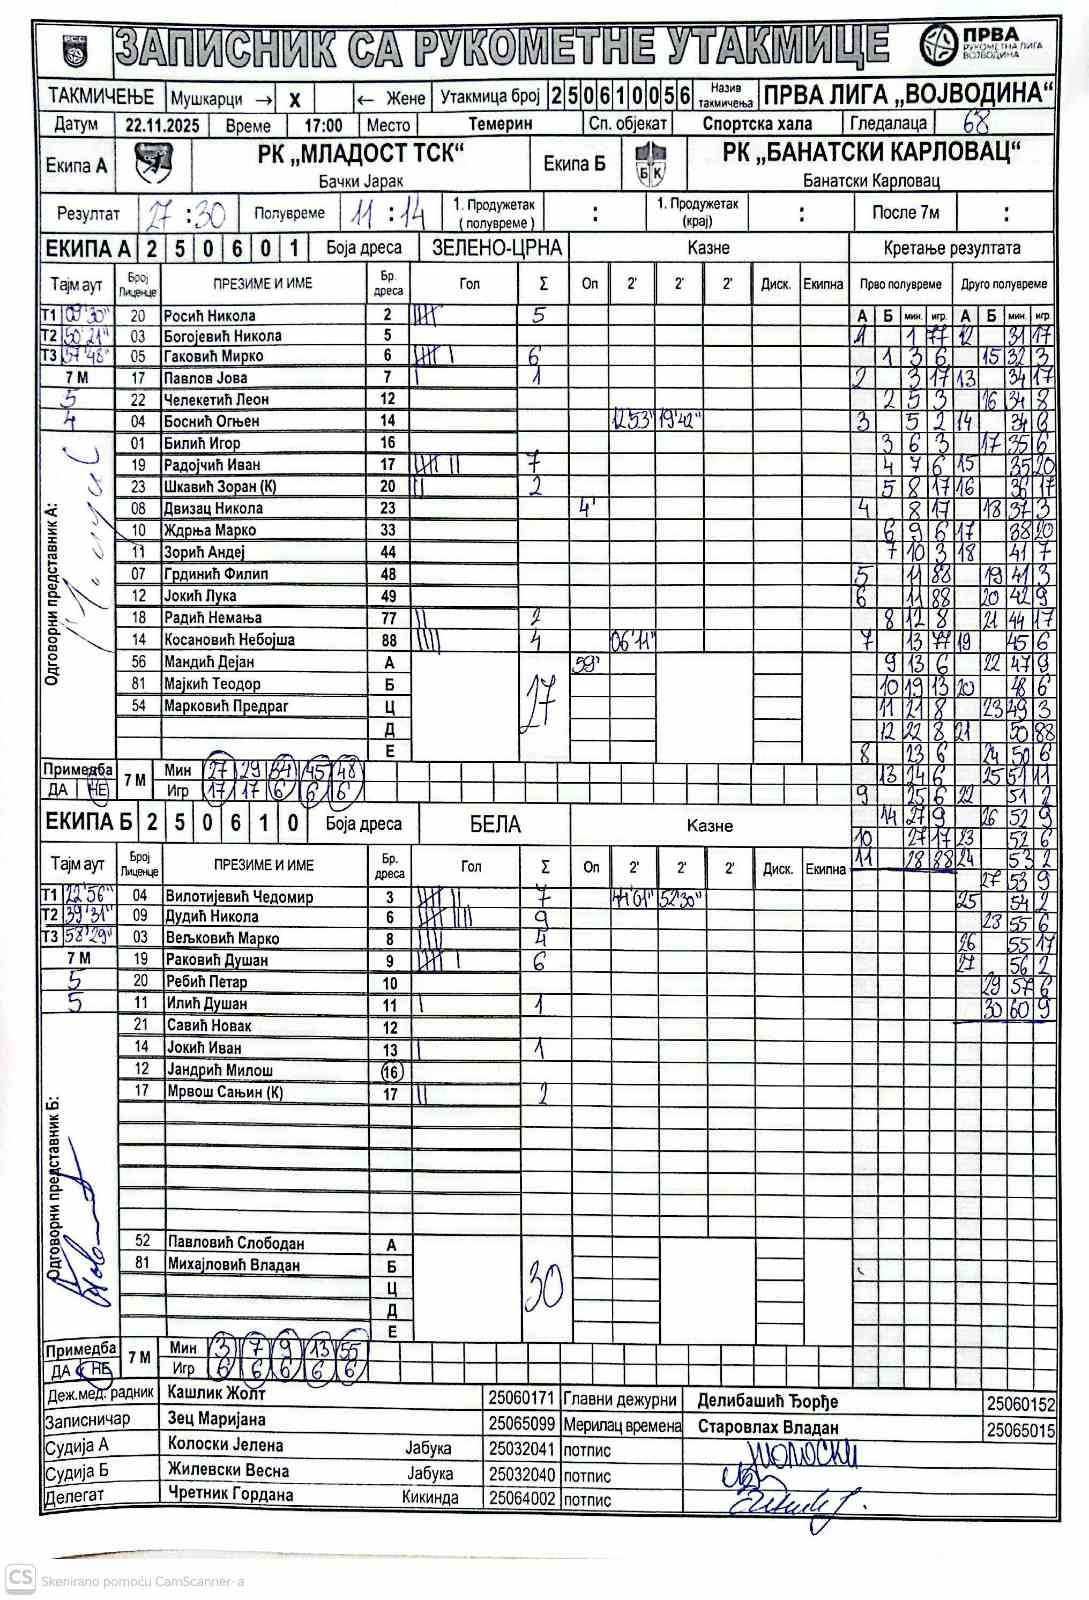 ЗАПИСНИК СА РУКОМЕТНЕ УТАКМИЦЕ
ПРВА
РУКОМЕТНА ЛИГА
ВОЈВОДИНА
ТАКМИЧЕЊЕ Мушкарци → X ← Жене Утакмица број 250610056 Назив такмичења ПРВА ЛИГА „ВОЈВОДИНА“
Датум 22.11.2025 Време 17:00 Место Темерин Сп. објекат Спортска хала Гледалаца 68
Екипа А РК „МЛАДОСТ ТСК“ Екипа Б РК „БАНАТСКИ КАРЛОВАЦ“
Бачки Јарак Банатски Карловац
Резултат 27:30 Полувреме 11:14 1. Продужетак (полувреме) : 1. Продужетак (крај) : После 7м :
ЕКИПА А 250601 Боја дреса ЗЕЛЕНО-ЦРНА Казне Кретање резултата
Тајм аут Број Лиценце ПРЕЗИМЕ И ИМЕ Бр. дреса Гол Σ Оп 2' 2' 2' Диск. Екипна Прво полувреме Друго полувреме
А Б мин. игр. А Б мин. игр.
Т1 20 Росић Никола 2 5
Т2 50'21" 03 Богојевић Никола 5
Т3 57'48" 05 Гаковић Мирко 6 6
7 М 17 Павлов Јова 7 1
5 22 Челекетић Леон 12
4 04 Боснић Огњен 14 12'53" 19'42"
01 Билић Игор 16
19 Радојчић Иван 17 7
23 Шкавић Зоран (К) 20 2
08 Двизац Никола 23 4'
10 Ждрња Марко 33
11 Зорић Андеј 44
07 Грдинић Филип 48
12 Јокић Лука 49
18 Радић Немања 77 2
14 Косановић Небојша 88 4 06'11"
56 Мандић Дејан А 59'
81 Мајкић Теодор Б
54 Марковић Предраг Ц
27
Д
Е
Одговорни представник А:
1 1 77 12 31 17
1 3 6 15 32 3
2 3 17 13 34 17
2 5 3 16 34 8
3 5 2 14 34 6
3 6 3 17 35 6
4 7 6 15 35 20
5 8 17 16 36 17
4 8 17 18 37 3
6 9 6 17 38 20
7 10 3 18 41 7
5 11 88 19 41 3
6 11 88 20 42 9
8 12 8 21 44 17
7 13 77 19 45 6
9 13 6 22 47 9
10 19 13 20 48 6
11 21 8 23 49 3
12 22 8 21 50 88
8 23 6 24 50 6
13 24 6 25 51 11
9 25 6 22 51 2
14 27 9 26 52 9
10 27 17 23 52 6
11 28 88 24 53 2
27 53 9
25 54 2
28 55 6
26 55 17
27 56 2
29 57 6
30 60 9
Примедба ДА НЕ 7 М Мин 27 29 34 45 48
Игр 17 17 6 6 6
ЕКИПА Б 250610 Боја дреса БЕЛА Казне
Тајм аут Број Лиценце ПРЕЗИМЕ И ИМЕ Бр. дреса Гол Σ Оп 2' 2' 2' Диск. Екипна
Т1 22'56" 04 Вилотијевић Чедомир 3 7 52'30"
Т2 39'31" 09 Дудић Никола 6 9
Т3 58'29" 03 Вељковић Марко 8 4
7 М 19 Раковић Душан 9 6
5 20 Ребић Петар 10
5 11 Илић Душан 11 1
21 Савић Новак 12
14 Јокић Иван 13 1
12 Јандрић Милош 16
17 Мрвош Сањин (К) 17 2
Одговорни представник Б:
52 Павловић Слободан А
81 Михајловић Владан Б
30
Ц
Д
Е
Примедба ДА НЕ 7 М Мин 3 7 9 13 55
Игр 6 6 6 6 6
Деж.мед. радник Кашлик Жолт 25060171 Главни дежурни Делибашић Ђорђе 25060152
Записничар Зец Маријана 25065099 Мерилац времена Старовлах Владан 25065015
Судија А Колоски Јелена Јабука 25032041 потпис Колоски
Судија Б Жилевски Весна Јабука 25032040 потпис
Делегат Чретник Гордана Кикинда 25064002 потпис
CS Skenirano pomoću CamScanner-a